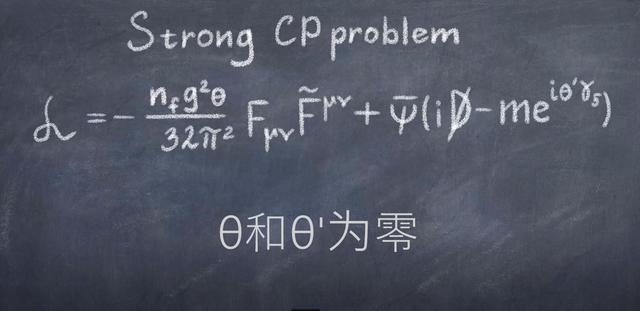 Strong CP problem
ℒ = - n_f g²θ / 32π² F_μν F̃^μν + ψ̄(iD̸ - me^{iθ'γ₅})
θ和θ'为零